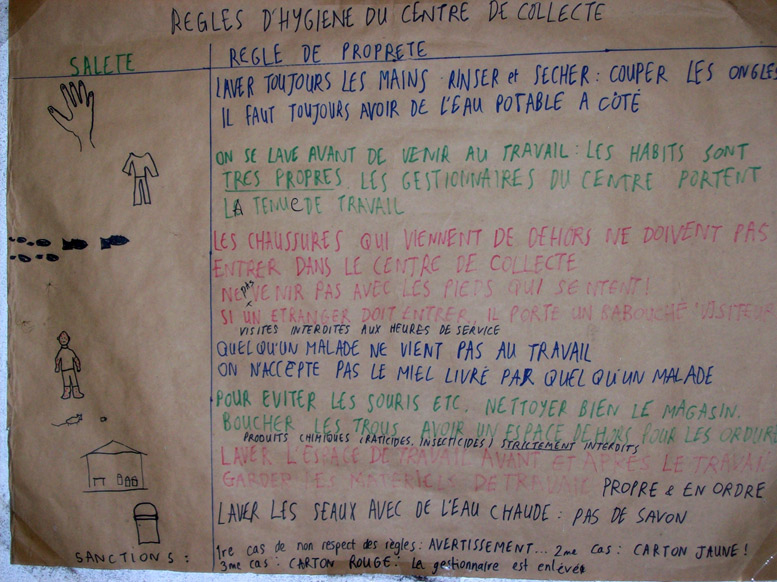 REGLES D'HYGIENE DU CENTRE DE COLLECTE
SALETE
REGLE DE PROPRETE
LAVER TOUJOURS LES MAINS RINSER et SECHER : COUPER LES ONGLES
IL FAUT TOUJOURS AVOIR DE L'EAU POTABLE A CÔTÉ
ON SE LAVE AVANT DE VENIR AU TRAVAIL : LES HABITS SONT
TRES PROPRES. LES GESTIONNAIRES DU CENTRE PORTENT
LA TENUE DE TRAVAIL
LES CHAUSSURES QUI VIENNENT DE DEHORS NE DOIVENT PAS
ENTRER DANS LE CENTRE DE COLLECTE
NE pas VENIR PAS AVEC LES PIEDS QUI SENTENT!
SI UN ETRANGER DOIT ENTRER, IL PORTE UN BABOUCHE 'VISITEUR
VISITES INTERDITES AUX HEURES DE SERVICE
QUELQU'UN MALADE NE VIENT PAS AU TRAVAIL
ON N'ACCEPTE PAS LE MIEL LIVRÉ PAR QUELQU'UN MALADE
POUR EVITER LES SOURIS ETC. NETTOYER BIEN LE MAGASIN.
BOUCHER LES TROUS. AVOIR UN ESPACE DEHORS POUR LES ORDURE
PRODUITS CHIMIQUES (RATICIDES, INSECTICIDES) STRICTEMENT INTERDITS
LAVER L'ESPACE DE TRAVAIL AVANT ET APRÈS LE TRAVAIL
GARDER LES MATERIELS DE TRAVAIL PROPRE & EN ORDRE
LAVER LES SEAUX AVEC DE L'EAU CHAUDE : PAS DE SAVON
SANCTIONS :
1re cas de non respect des règles : AVERTISSEMENT... 2me cas : CARTON JAUNE !
3me cas : CARTON ROUGE : la gestionnaire est enlevée